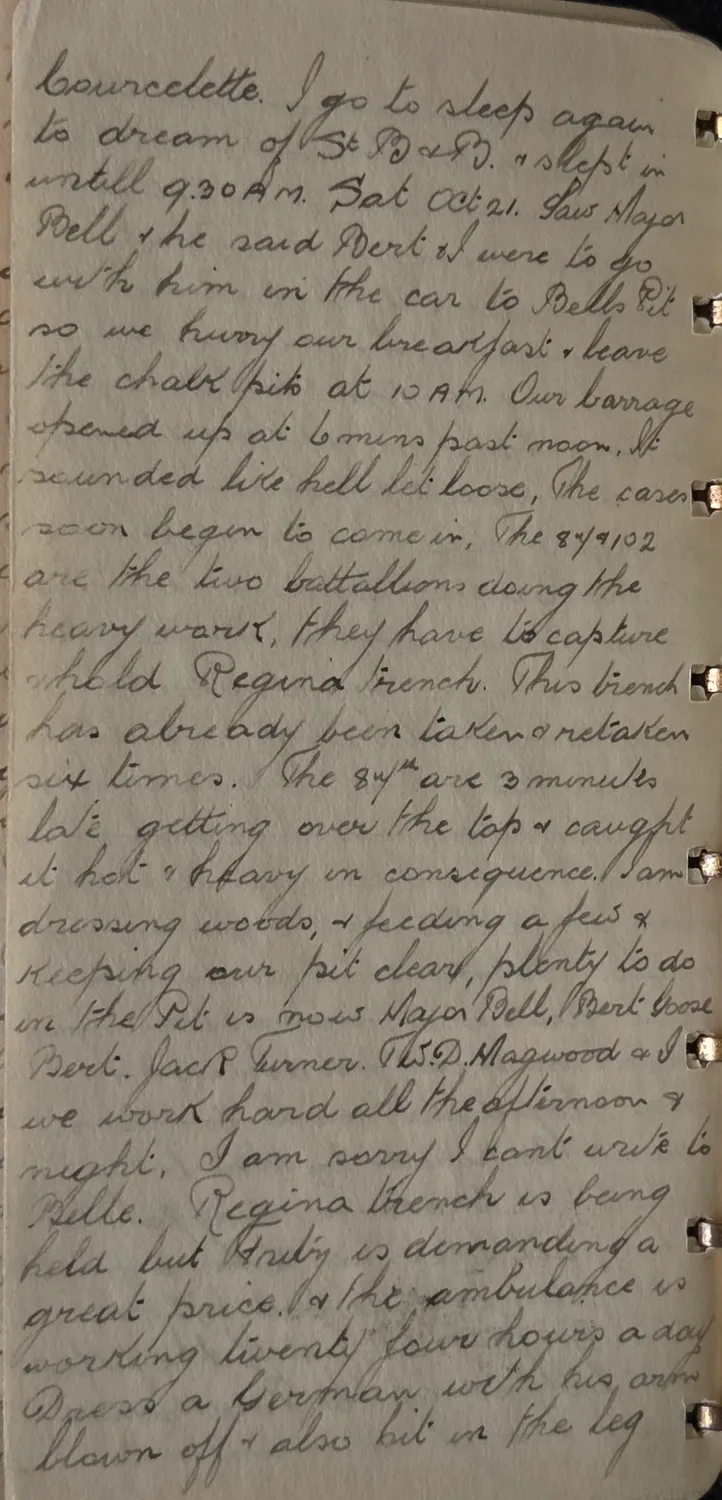 Courcelette. I go to sleep again
to dream of St B & B. & slept in
untill 9.30 AM. Sat Oct 21. Saw Major
Bell & he said Bert & I were to go
with him in the car to Bells Pit
so we hurry our breakfast & leave
the chalk pits at 10 AM. Our barrage
opened up at 6 mins past noon. It
sounded like hell let loose, The cases
soon begin to come in, The 87 & 102
are the two battallions doing the
heavy work, they have to capture
& hold Regina trench. This trench
has already been taken & retaken
six times. The 87th are 3 minutes
late getting over the top & caught
it hot & heavy in consequence. I am
dressing woods, & feeding a few &
keeping our pit clear, plenty to do
in the Pit is now Major Bell, Bert Goose
Bert. Jack Turner. T.W.D. Magwood & I
we work hard all the afternoon &
night. I am sorry I cant write to
Belle. Regina trench is being
held but is demanding a
great price. & the ambulance is
working twenty four hours a day
Dress a German with his arm
blown off & also hit in the leg